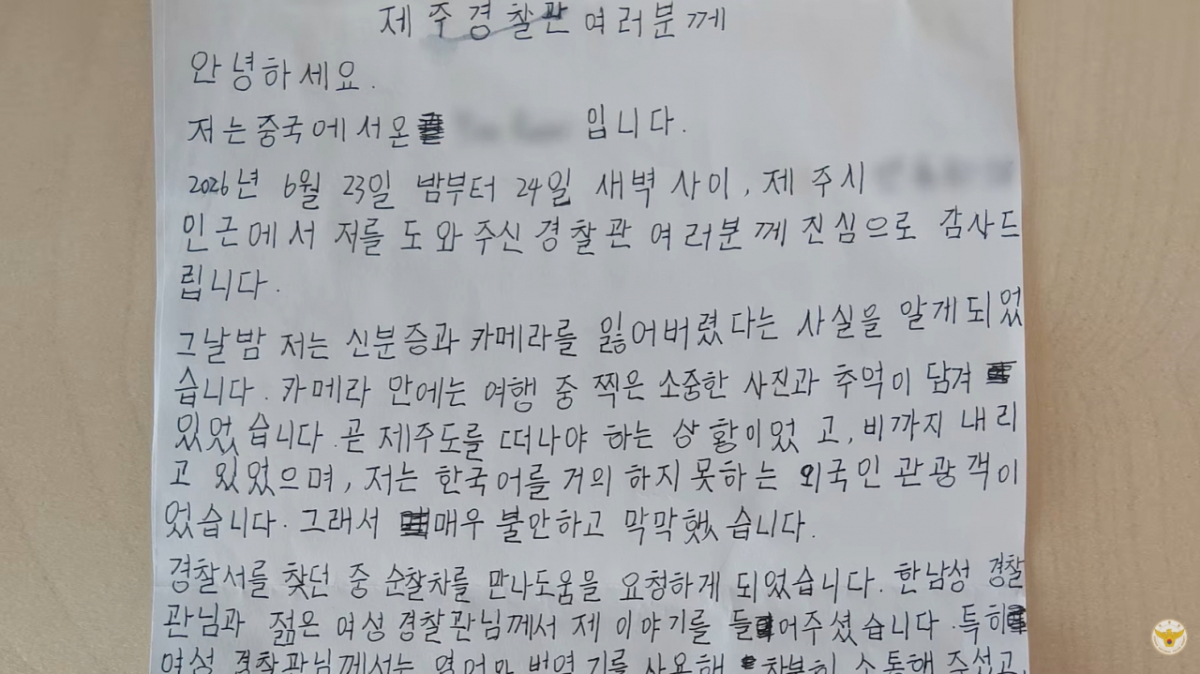 제주경찰관 여러분께
안녕하세요.
저는 중국에서 온 입니다.
2026년 6월 23일 밤부터 24일 새벽 사이, 제주시
인근에서 저를 도와주신 경찰관 여러분께 진심으로 감사드
립니다.
그날밤 저는 신분증과 카메라를 잃어버렸다는 사실을 알게되었
습니다. 카메라 안에는 여행 중 찍은 소중한 사진과 추억이 담겨
있었습니다. 곧 제주도를 떠나야 하는 상황이었고, 비까지 내리
고 있었으며, 저는 한국어를 거의 하지 못하는 외국인 관광객이
었습니다. 그래서 매우 불안하고 막막했습니다.
경찰서를 찾던 중 순찰차를 만나 도움을 요청하게 되었습니다. 한 남성 경찰
관님과 젊은 여성 경찰관님께서 제 이야기를 들어주셨습니다. 특히
여성 경찰관님께서는 영어와 번역기를 사용해 차분히 소통해 주셨고,